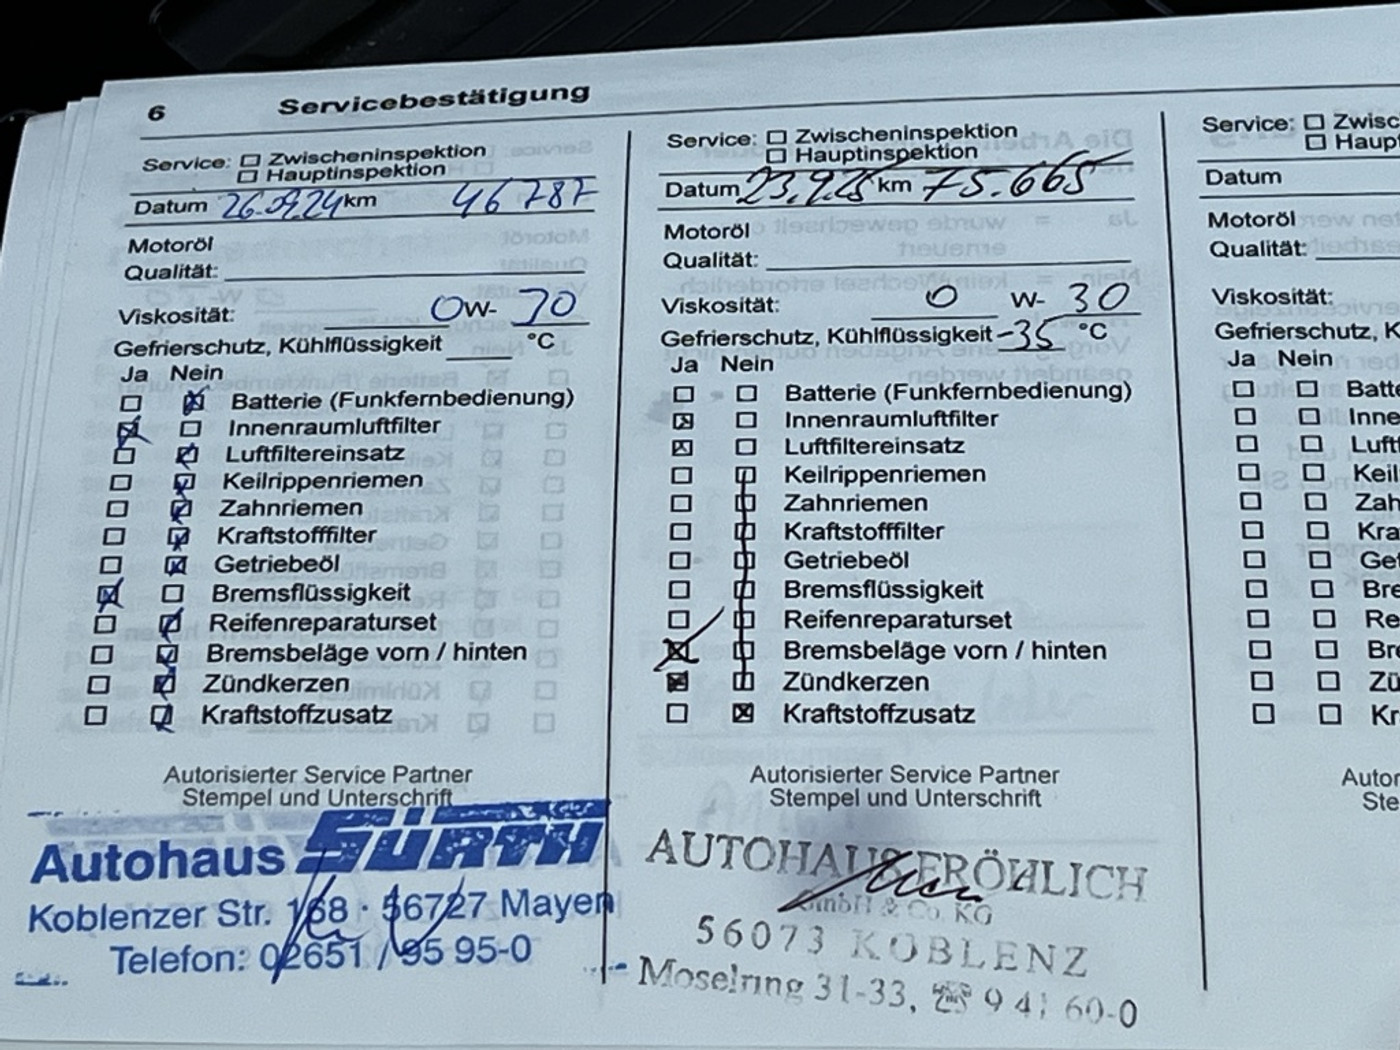 6 Servicebestätigung
Service: ☐ Zwischeninspektion
☐ Hauptinspektion
Datum 26.09.24 km 46787
Motoröl
Qualität:
Viskosität: 0W-
Gefrierschutz, Kühlflüssigkeit °C
Ja Nein
☐ ☒ Batterie (Funkfernbedienung)
☒ ☐ Innenraumluftfilter
☐ ☒ Luftfiltereinsatz
☐ ☒ Keilrippenriemen
☐ ☒ Zahnriemen
☐ ☒ Kraftstofffilter
☐ ☒ Getriebeöl
☒ ☐ Bremsflüssigkeit
☐ ☒ Reifenreparaturset
☐ ☒ Bremsbeläge vorn / hinten
☐ ☒ Zündkerzen
☐ ☒ Kraftstoffzusatz
Autorisierter Service Partner
Stempel und Unterschrift
Autohaus SÜRTH
Koblenzer Str. 168 · 56727 Mayen
Telefon: 02651 / 95 95-0
Service: ☐ Zwischeninspektion
☐ Hauptinspektion
Datum 23.9.25 km 75.665
Motoröl
Qualität:
Viskosität: 0 W- 30
Gefrierschutz, Kühlflüssigkeit -35 °C
Ja Nein
☐ ☐ Batterie (Funkfernbedienung)
☒ ☐ Innenraumluftfilter
☒ ☐ Luftfiltereinsatz
☐ ☐ Keilrippenriemen
☐ ☐ Zahnriemen
☐ ☐ Kraftstofffilter
☐ ☐ Getriebeöl
☐ ☐ Bremsflüssigkeit
☐ ☐ Reifenreparaturset
☒ ☐ Bremsbeläge vorn / hinten
☒ ☐ Zündkerzen
☐ ☒ Kraftstoffzusatz
Autorisierter Service Partner
Stempel und Unterschrift
AUTOHAUS FRÖHLICH
GmbH & Co. KG
56073 KOBLENZ
Moselring 31-33, ☎ 9 41 60-0
Service: ☐ Zwisc
☐ Haupt
Datum
Motoröl
Qualität:
Viskosität:
Gefrierschutz, K
Ja Nein
☐ ☐ Batt
☐ ☐ Inne
☐ ☐ Luft
☐ ☐ Keil
☐ ☐ Zah
☐ ☐ Kra
☐ ☐ Get
☐ ☐ Bre
☐ ☐ Re
☐ ☐ Bre
☐ ☐ Zü
☐ ☐ Kr
Autor
Ste